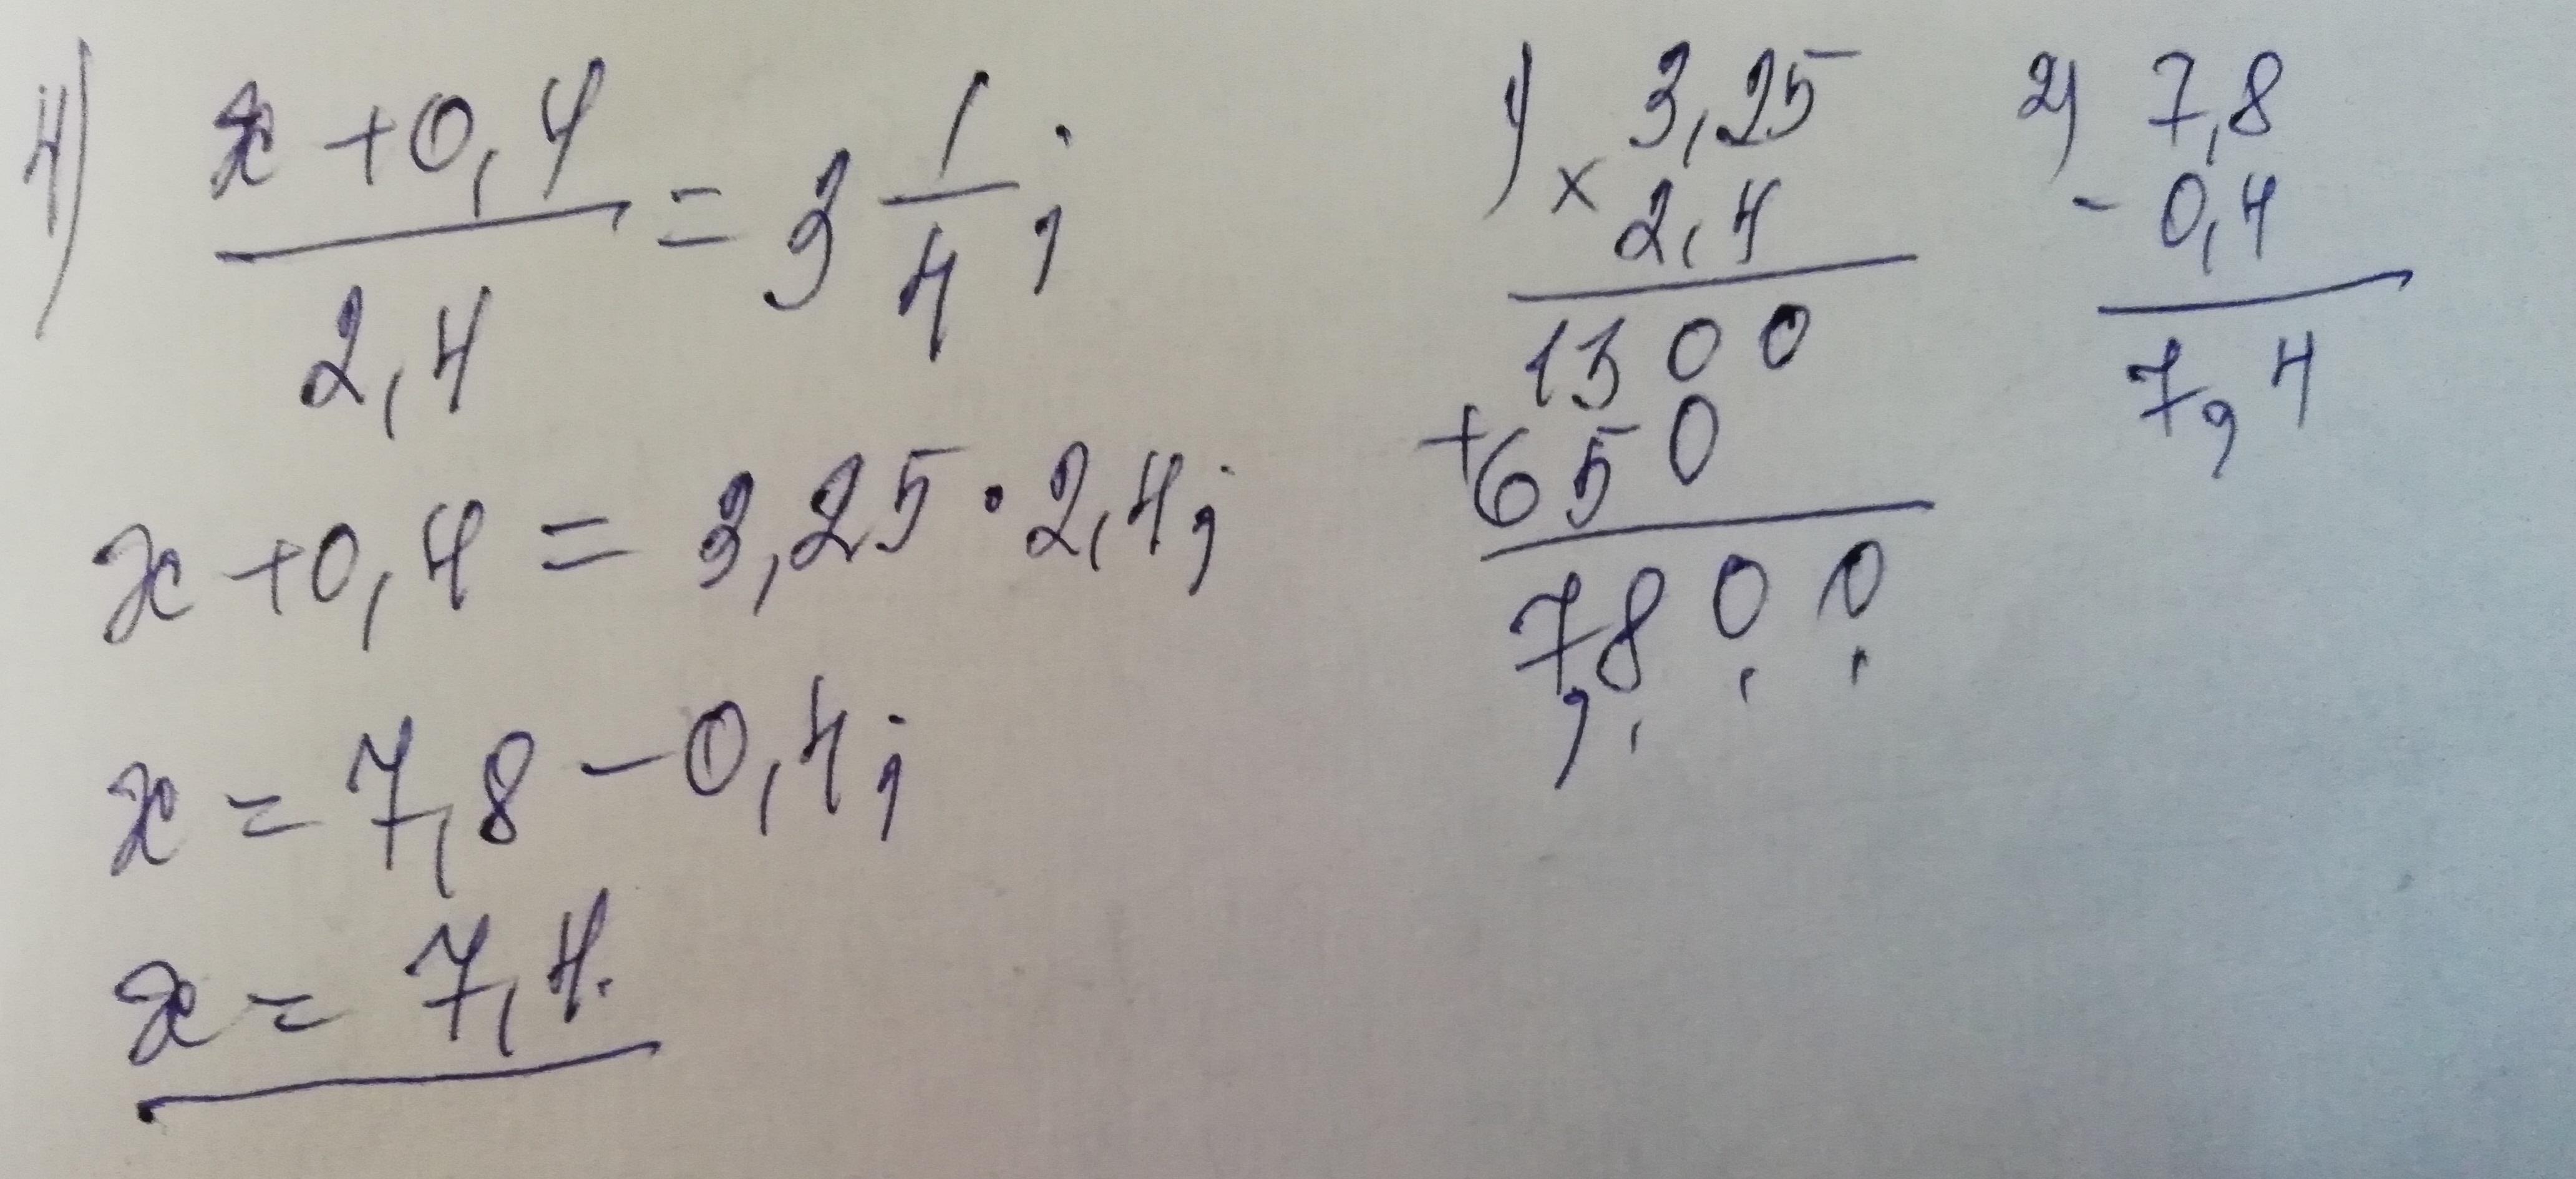 4) x+0,4 / 2,4 = 3 1/4;
x+0,4 = 3,25 · 2,4;
x = 7,8 − 0,4;
x = 7,4.
1) 3,25
× 2,4
1300
+ 650
7,800
2) 7,8
- 0,4
7,4